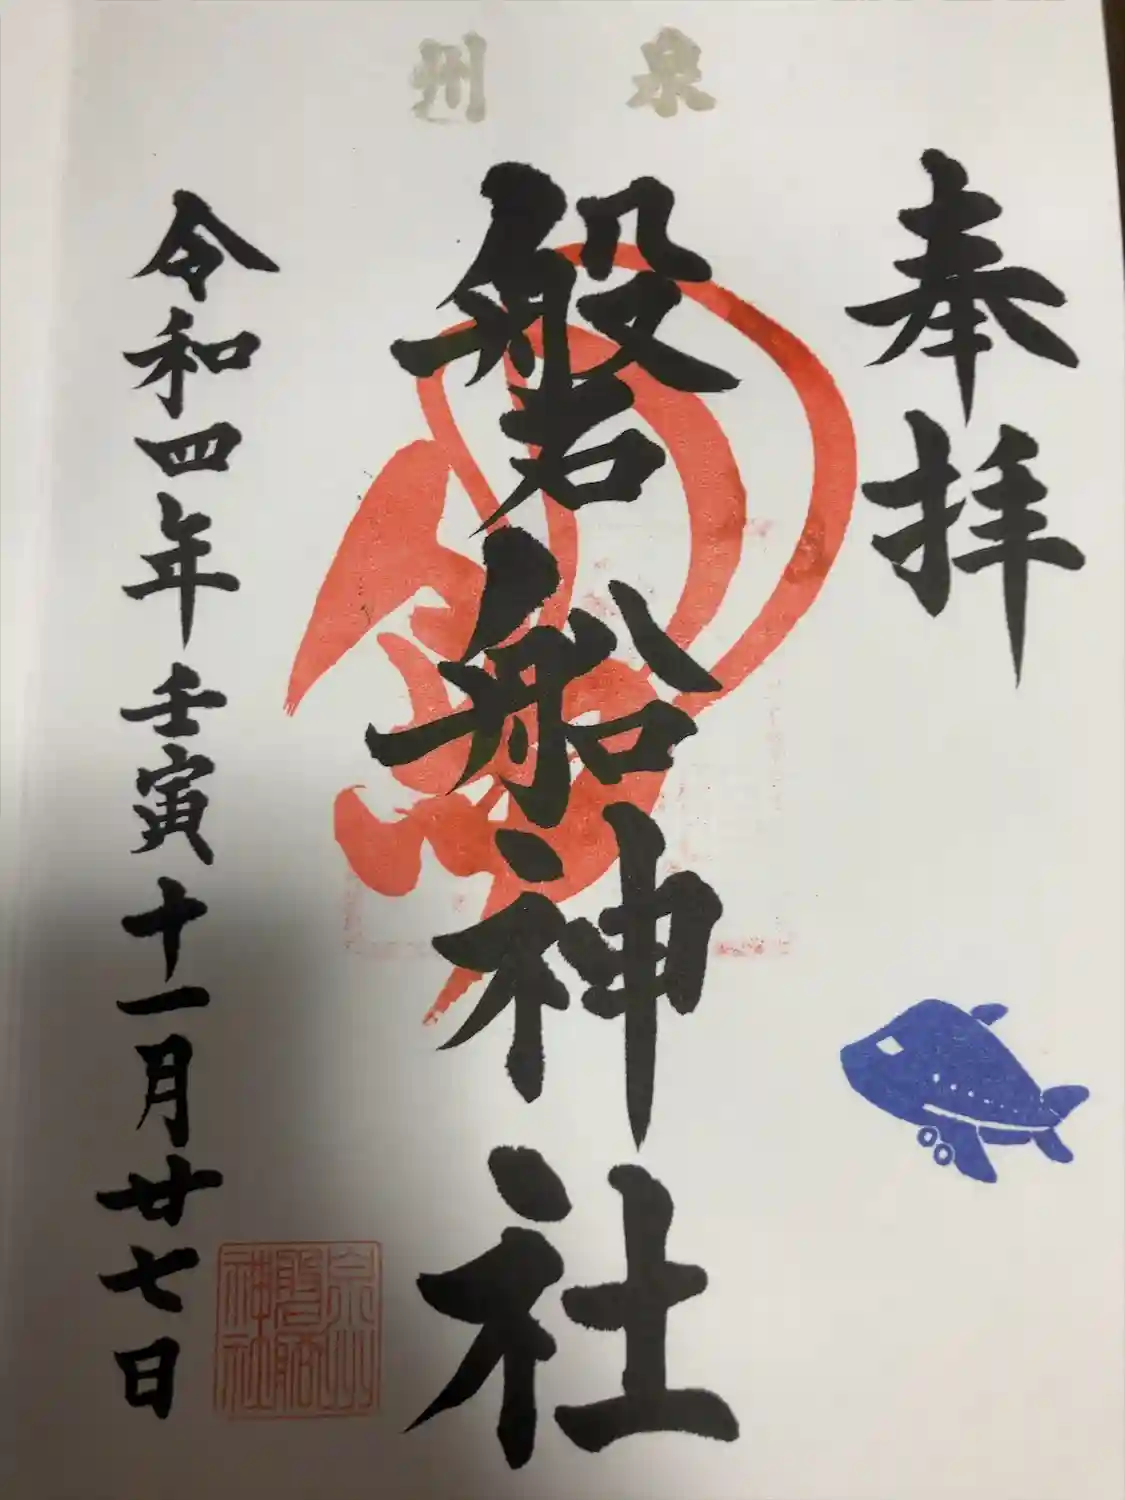 泉州
奉拝
磐船神社
令和四年壬寅十一月廿七日
泉州磐船神社